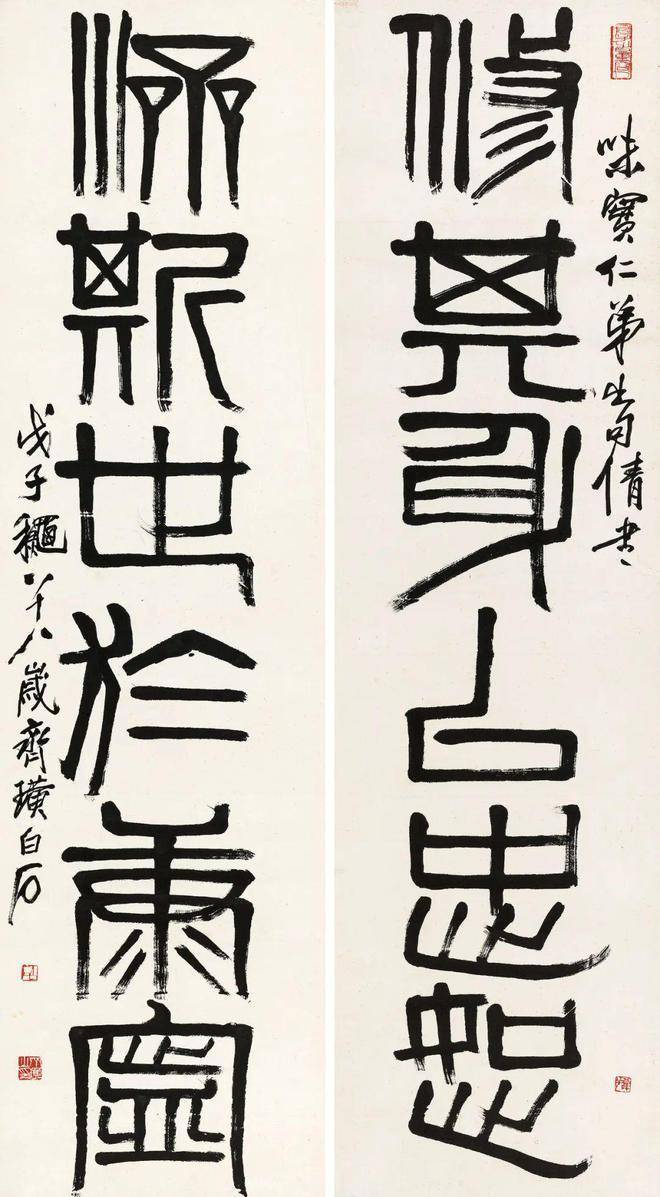 味寶仁弟出句倩書
修其身以忠恕
斯世於康寧
戊子龝八十八歲齊璜白石